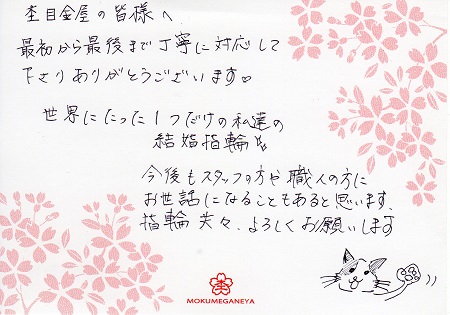 杢目金屋の皆様へ
最初から最後まで丁寧に対応して
下さりありがとうございます♡
世界にたった1つだけの私達の
結婚指輪を
今後もスタッフの方や職人の方に
お世話になることもあると思います。
指輪共々、よろしくお願いします
杢
MOKUMEGANEYA